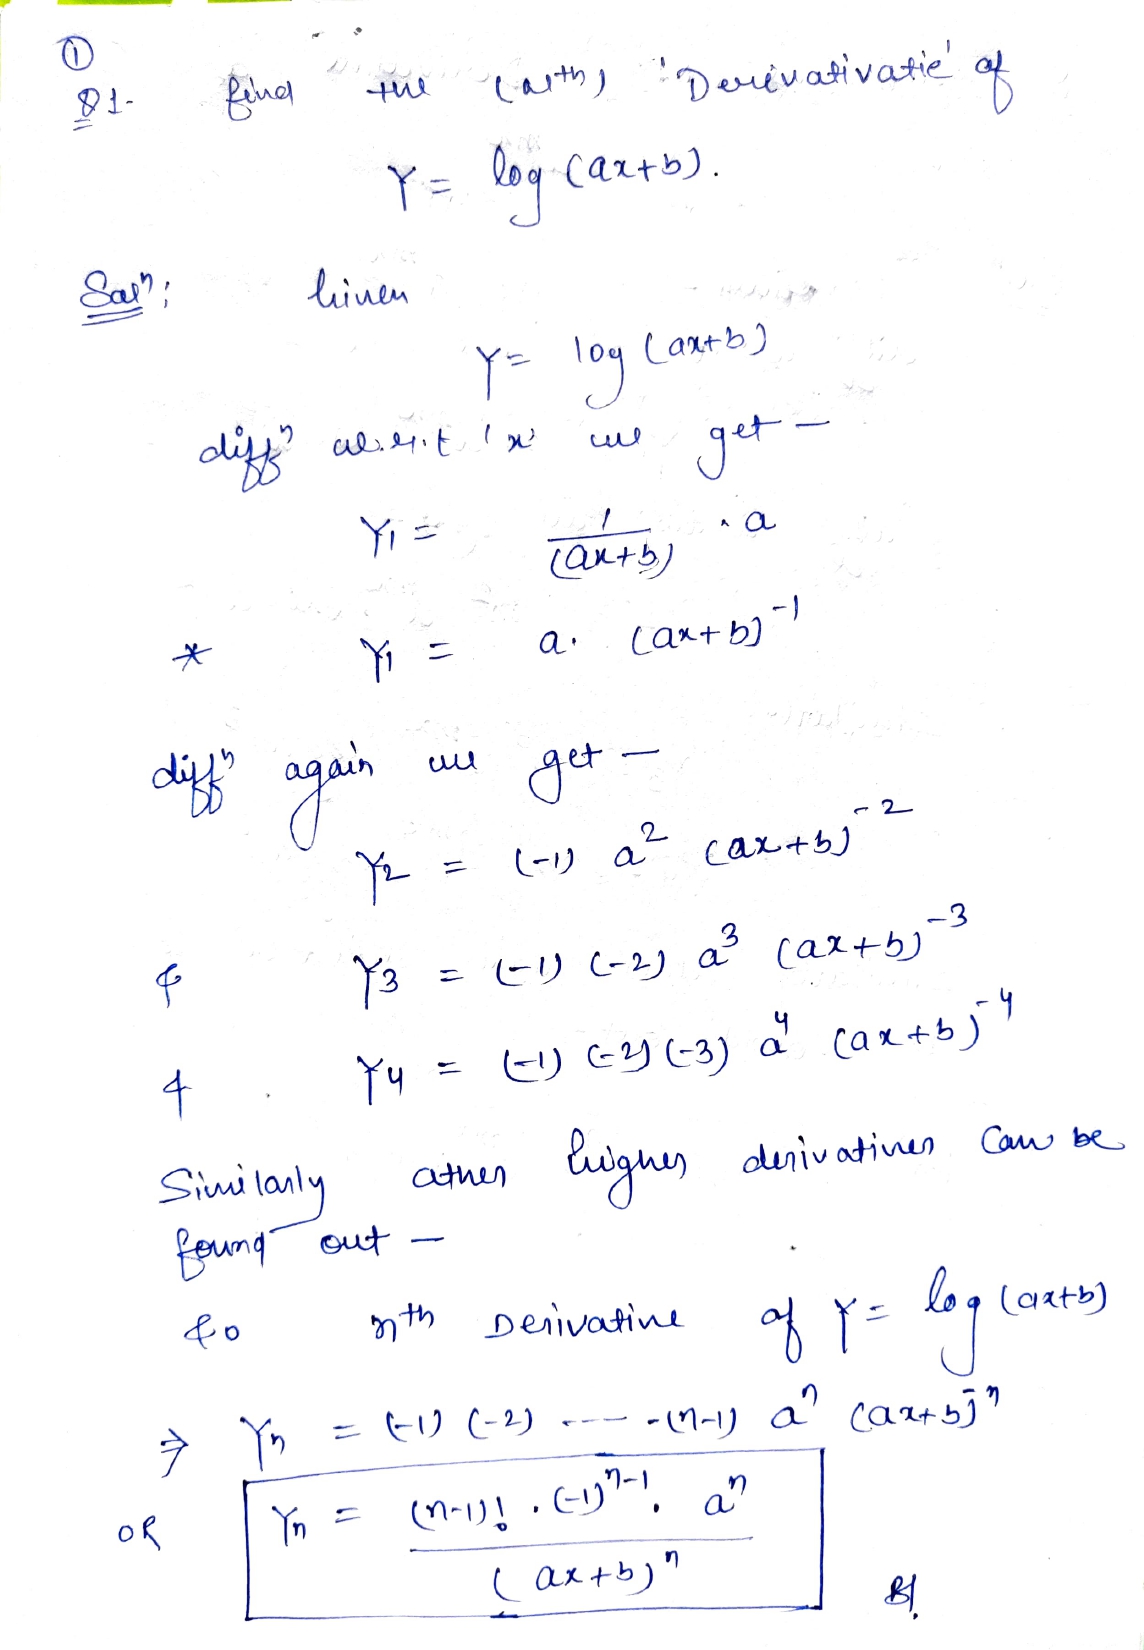 ①
Q1- find the (nth) 'Derivativatie' of
Y = log (ax+b).
Solⁿ: Given
Y = log (ax+b)
diffⁿ w.r.t 'x' we get –
Y₁ = 1/(ax+b) · a
* Y₁ = a. (ax+b)⁻¹
diffⁿ again we get –
Y₂ = (-1) a² (ax+b)⁻²
& Y₃ = (-1) (-2) a³ (ax+b)⁻³
& Y₄ = (-1) (-2) (-3) a⁴ (ax+b)⁻⁴
Similarly other higher derivatives can be
found out –
So nth Derivative of Y = log (ax+b)
⇒ Yₙ = (-1) (-2) ---- -(n-1) aⁿ (ax+b)⁻ⁿ
OR Yₙ = (n-1)! . (-1)ⁿ⁻¹. aⁿ / (ax+b)ⁿ